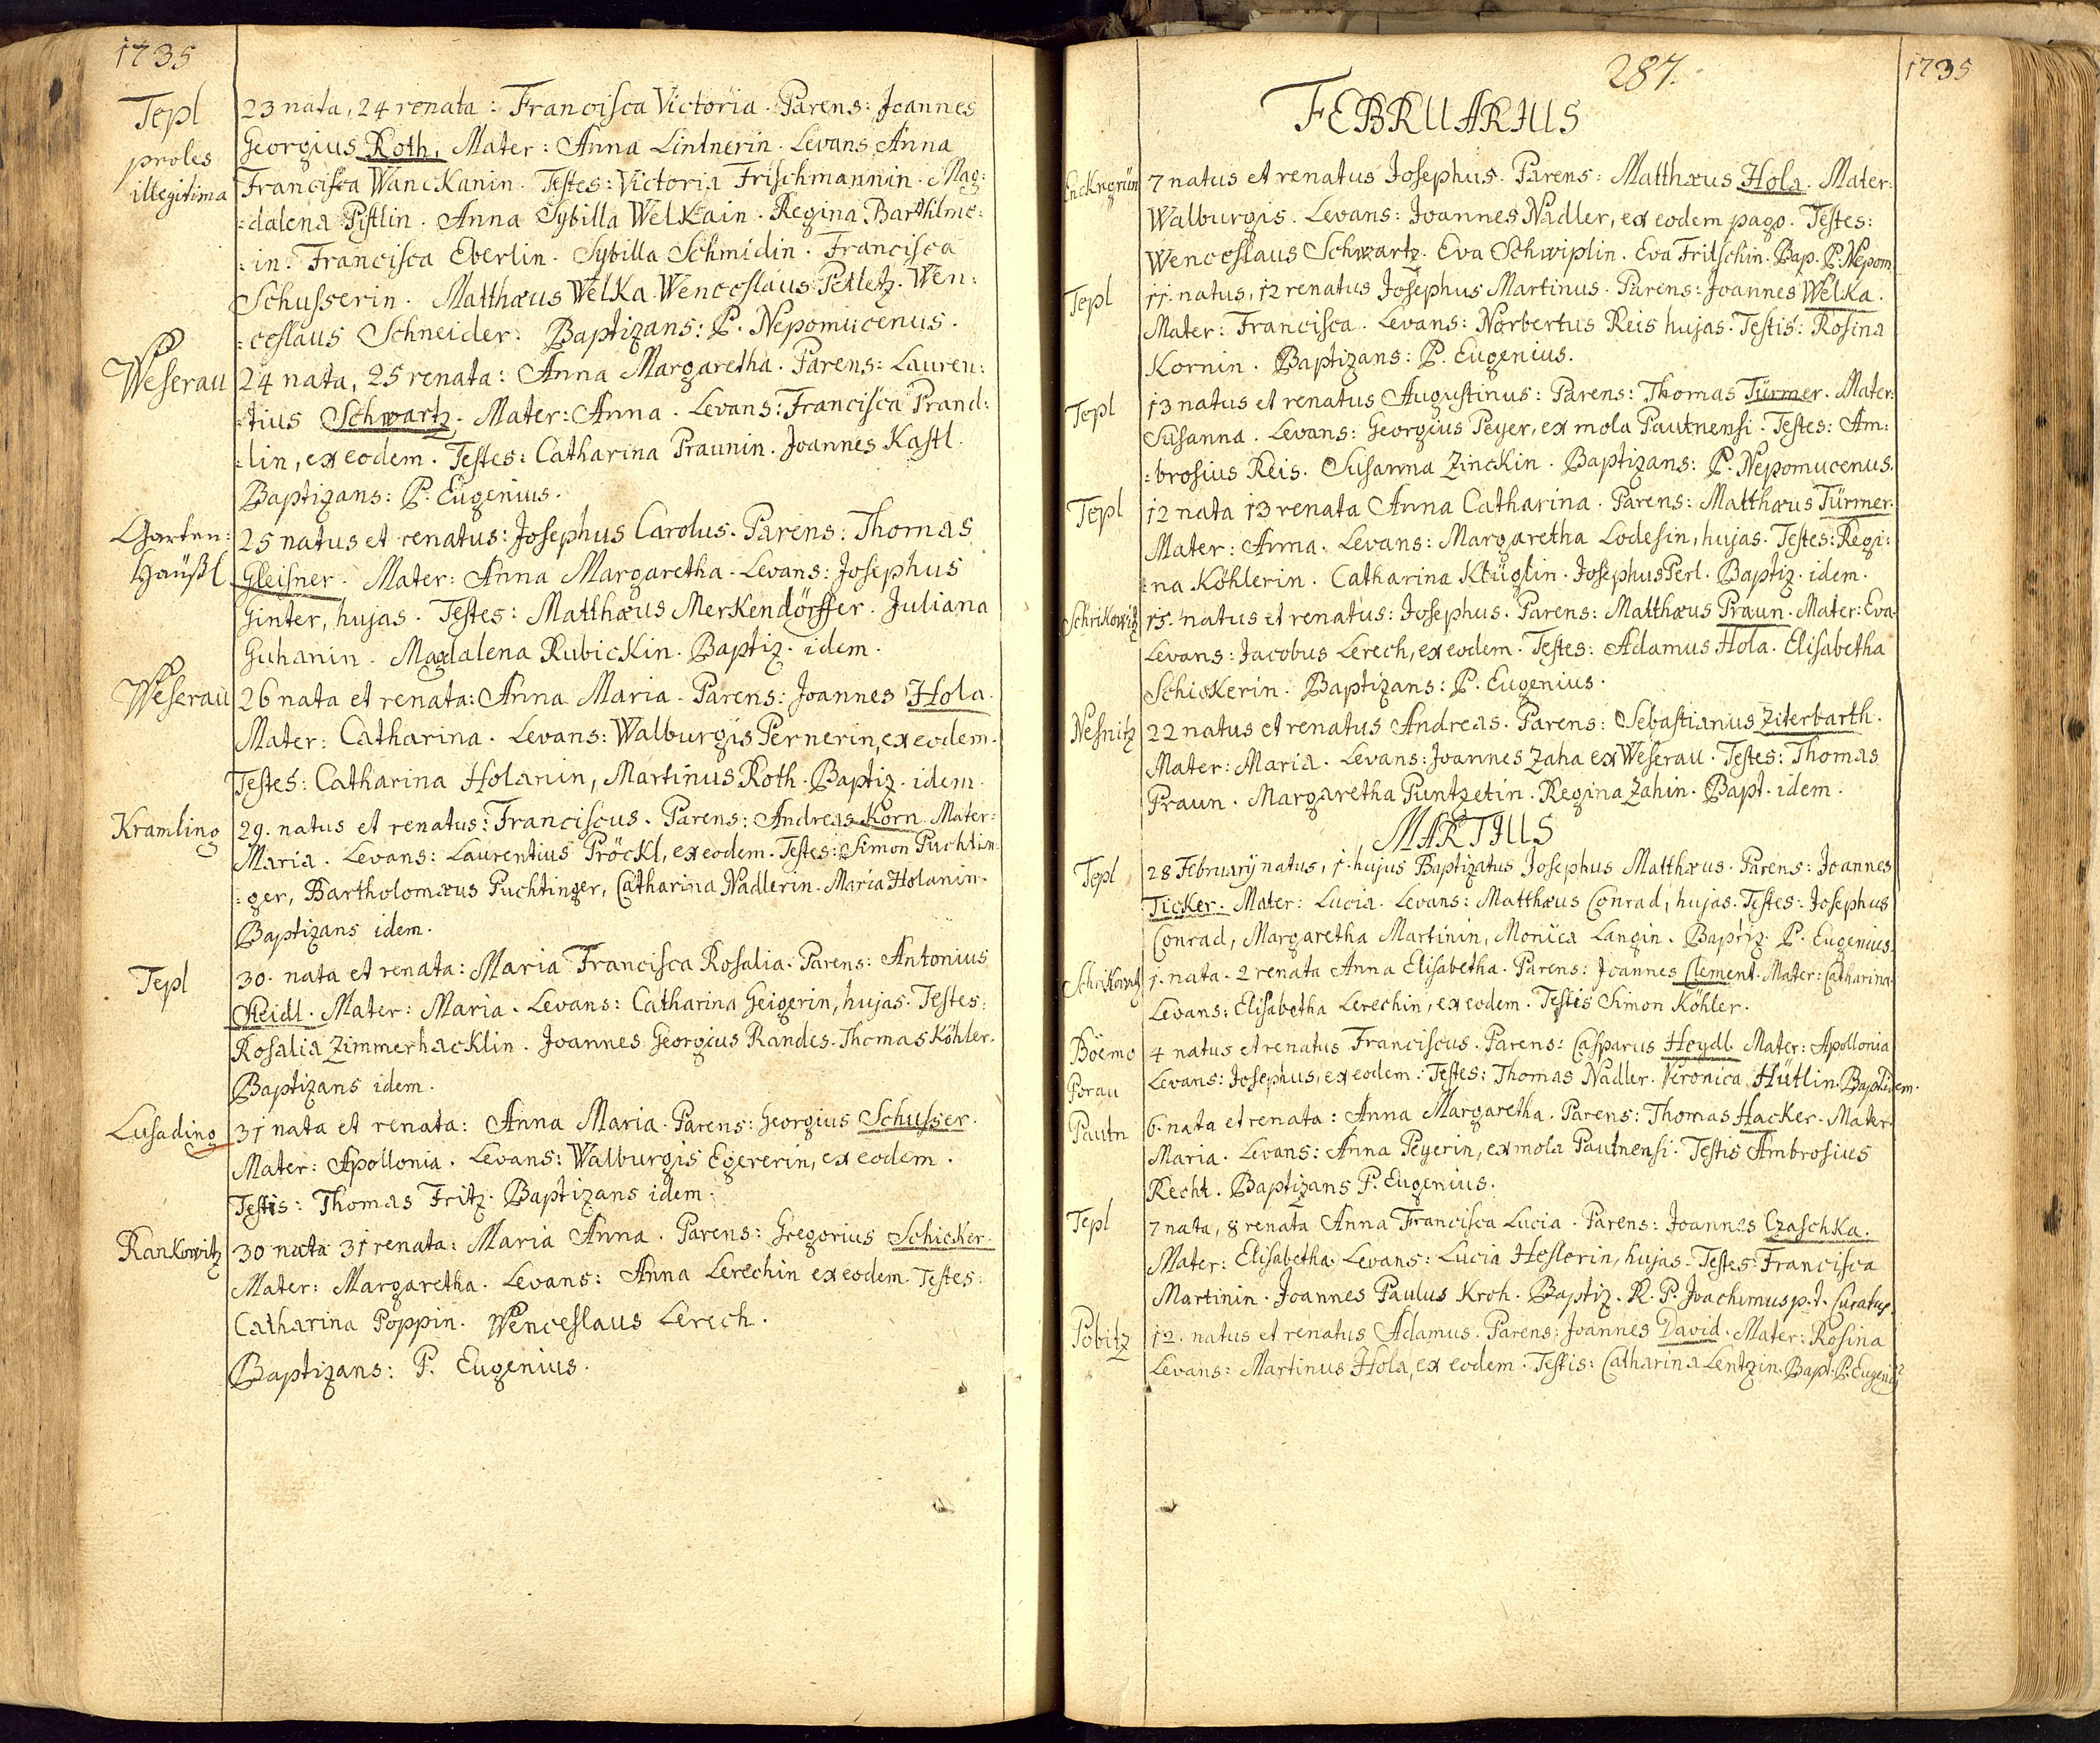 1735
Tepl
proles
illegitima
23 nata, 24 renata: Francisca Victoria. Parens: Joannes
Georgius Roth, Mater: Anna Lintnerin. Levans Anna
Francisca Wanckanin. Testes: Victoria Frischmannin. Mag:
:dalena Pistlin. Anna Sybilla Welkain. Regina Barthlme:
:in. Francisca Eberlin. Sybilla Schmidin. Francisca
Schusserin. Matthæus Welka. Wenceslaus Petletz. Wen:
:ceslaus Schneider. Baptizans: P. Nepomucenus.
Weserau
24 nata, 25 renata: Anna Margaretha. Parens: Lauren:
:tius Schwartz. Mater: Anna. Levans: Francisca Prand:
:lin, ex eodem. Testes: Catharina Praunin. Joannes Kastl.
Baptizans: P. Eugenius.
Garten:
Haüßl
25 natus et renatus: Josephus Carolus. Parens: Thomas
Gleisner. Mater: Anna Margaretha. Levans: Josephus
Ginter, hujas. Testes: Matthæus Merkendörffer. Juliana
Guhanin. Magdalena Rubickin. Baptiz. idem.
Weserau
26 nata et renata: Anna Maria. Parens: Joannes Hola.
Mater: Catharina. Levans: Walburgis Pernerin, ex eodem.
Testes: Catharina Holanin, Martinus Roth. Baptiz. idem.
Kramling
29. natus et renatus: Franciscus. Parens: Andreas Korn. Mater:
Maria. Levans: Laurentius Pröckl, ex eodem. Testes: Simon Puchtin:
:ger, Bartholomæus Puchtinger, Catharina Nadlerin. Maria Holanin.
Baptizans idem.
Tepl
30. nata et renata: Maria Francisca Rosalia. Parens: Antonius
Heidl. Mater: Maria. Levans: Catharina Geigerin, hujas. Testes:
Rosalia Zimmerhacklin. Joannes Georgius Randes. Thomas Köhler.
Baptizans idem.
Lusading
31 nata et renata: Anna Maria. Parens: Georgius Schusser.
Mater: Apollonia. Levans: Walburgis Egererin, ex eodem.
Testis: Thomas Fritz. Baptizans idem.
Rankowitz
30 nata 31 renata: Maria Anna. Parens: Gregorius Schicker.
Mater: Margaretha. Levans: Anna Lerechin ex eodem. Testes:
Catharina Poppin. Wenceslaus Lerech.
Baptizans: P. Eugenius.
287.
1735
FEBRUARIUS
Enckngrün
7 natus et renatus Josephus. Parens: Matthæus Hola. Mater:
Walburgis. Levans: Joannes Nadler, ex eodem pago. Testes:
Wenceslaus Schwartz. Eva Schwiplin. Eva Fritschin. Bap. P. Nepom.
Tepl
11. natus, 12 renatus Josephus Martinus. Parens: Joannes Welka.
Mater: Francisca. Levans: Norbertus Reis hujas. Testis: Rosina
Kornin. Baptizans: P. Eugenius.
Tepl
13 natus et renatus Augustinus: Parens: Thomas Türmer. Mater:
Susanna. Levans: Georgius Peyer, ex mola Pautnensi. Testes: Am:
:brosius Reis. Susanna Zinckin. Baptizans: P. Nepomucenus.
Tepl
12 nata 13 renata Anna Catharina. Parens: Matthæus Türmer.
Mater: Anna. Levans: Margaretha Lodesin, hujas. Testes: Regi:
:na Köhlerin. Catharina Klüglin. Josephus Perl. Baptiz. idem.
Schrikowitz
15. natus et renatus: Josephus. Parens: Matthæus Praun. Mater: Eva.
Levans: Jacobus Lerech, ex eodem. Testes: Adamus Hola. Elisabetha
Schickerin. Baptizans: P. Eugenius.
Nesnitz
22 natus et renatus Andreas. Parens: Sebastianus Ziterbarth.
Mater: Maria. Levans: Joannes Zaha ex Weserau. Testes: Thomas
Praun. Margaretha Puntzetin. Regina Zahin. Bapt. idem.
MARTIUS
Tepl
28 Februarij natus, 1. hujus Baptizatus Josephus Matthæus. Parens: Joannes
Ticker. Mater: Lucia. Levans: Matthæus Conrad, hujas. Testes: Josephus
Conrad, Margaretha Martinin, Monica Langin. Baptiz. P. Eugenius.
Schrikowitz
1. nata. 2 renata Anna Elisabetha. Parens: Joannes Clement. Mater: Catharina.
Levans: Elisabetha Lerechin, ex eodem. Testis Simon Köhler.
Böemo
Porau
4 natus et renatus Franciscus. Parens: Casparus Heydl. Mater: Apollonia
Levans: Josephus, ex eodem. Testes: Thomas Nadler. Veronica Hütlin. Bapt. idem.
Pautn
6. nata et renata: Anna Margaretha. Parens: Thomas Hacker. Mater:
Maria. Levans: Anna Peyerin, ex mola Pautnensi. Testis Ambrosius
Recht. Baptizans P. Eugenius.
Tepl
7 nata, 8 renata Anna Francisca Lucia. Parens: Joannes Czaschka.
Mater: Elisabetha. Levans: Lucia Heslerin, hujas. Testes: Francisca
Martinin. Joannes Paulus Kroh. Baptiz. R. P. Joachimus p. t. Curatus.
Pobitz
12. natus et renatus Adamus. Parens: Joannes David. Mater: Rosina
Levans: Martinus Hola, ex eodem. Testis: Catharina Lentzin. Bapt. P. Eugenius